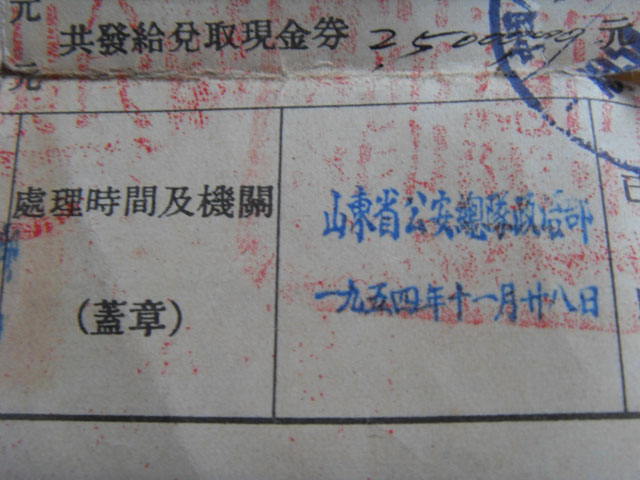 元
共發給兌取現金券 元
元
處理時間及機關
(蓋章)
山東省公安總隊政治部
一九五四年十一月廿八日